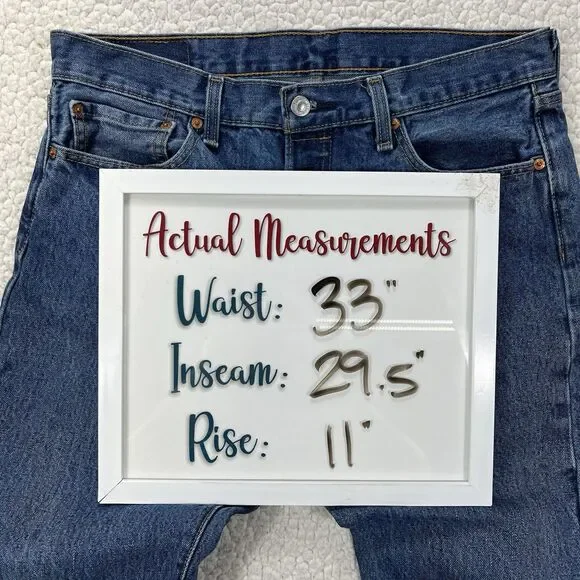 Actual Measurements
Waist: 33"
Inseam: 29.5"
Rise: 11"